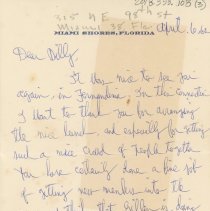 315 N E 98th St
Miami 38 Fla
MIAMI SHORES, FLORIDA
April 6
Dear Dolly,
It was nice to see you
again, in Fernandina. In this connection
I want to thank you for arranging
the nice lunch, and especially for getting
such a nice crowd of people together
You have certainly done a fine job
of getting new members into the
that
is doing